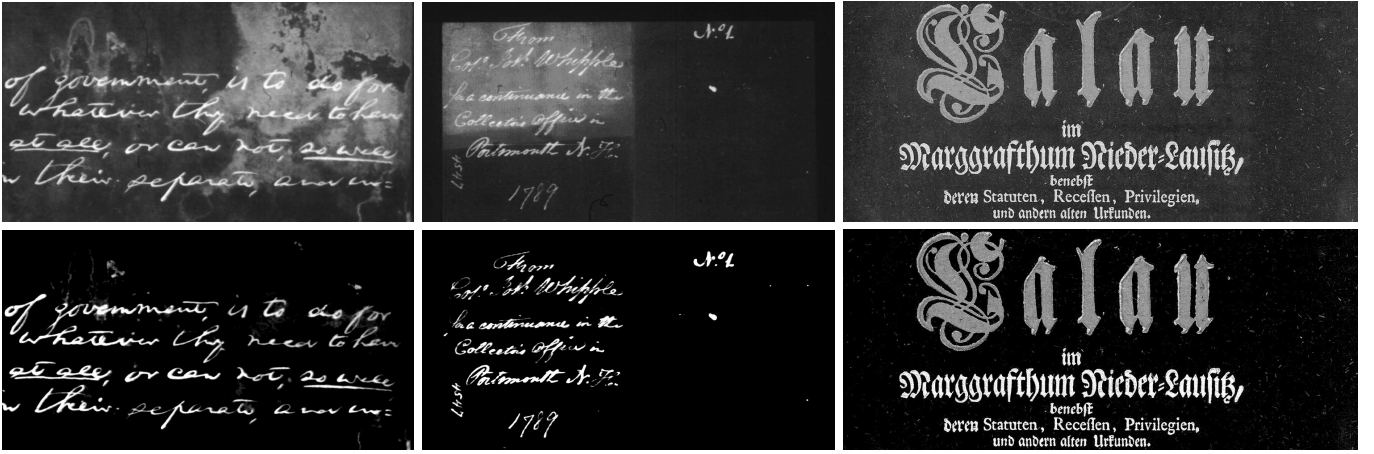 of government, is to do for
whatever they need to have
at all, or can not, so well
their separate, and in=
From
Col.º Jos.h Whipple
for a continuance in the
Collector's Office in
Portsmouth N. H.
1789
N.º 1
Calau
im
Marggrafthum Nieder-Lausitz,
benebst
deren Statuten, Recessen, Privilegien,
und andern alten Urkunden.
of government, is to do for
whatever they need to have
at all, or can not, so well
their separate, and in=
From
Col.º Jos.h Whipple
for a continuance in the
Collector's Office in
Portsmouth N. H.
1789
N.º 1
Calau
im
Marggrafthum Nieder-Lausitz,
benebst
deren Statuten, Recessen, Privilegien,
und andern alten Urkunden.